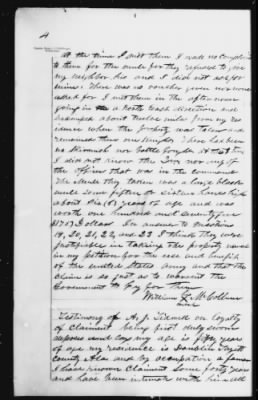 4
At the time I met them I made no complaint
to them for the mule for they refused to give
my neighbor his and I did not ask for
mine. There was no voucher given nor none
asked for I met them in the afternoon
going in a North East direction and
encamped about twelve miles from my res
idence when the property was taken and
remained there one night. There had been
no skirmish nor battle fought at that time
I did not know the nor any of
the officers that was in the command
The mule they taken was a large black
mule some fifteen or sixteen hands high
about six (6) years of age and was
worth one hundred and Seventy five
(175) Dollars In answer to questions
19, 20, 21, 22, and 23 I think they were
justifiable in taking the property named
in my petition for the use and benefit
of the united states army and that the
Claim is so just as to warrant the
Government to pay for them
William
Testimony of A. J. on loyalty
of Claimant being first duly sworn
deposes and says my age is years
of age my residence is in Fayett
County Alas and by occupation a farmer
I have known Claimant Some forty years
and have been intimate with him all